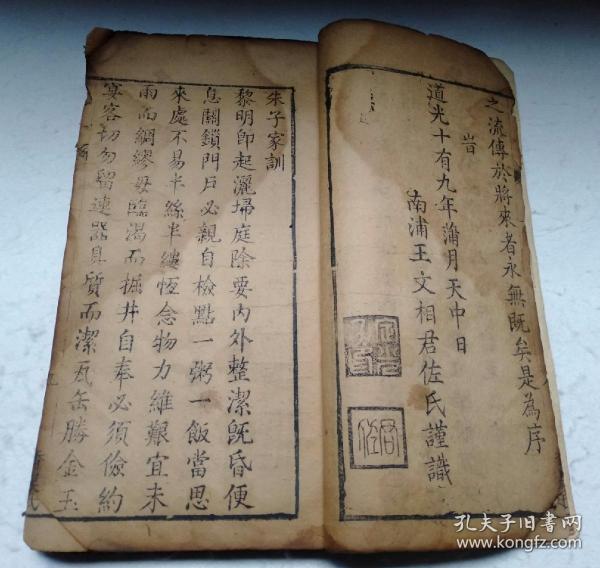 之流傳於將來者永無既矣是為序
旹
道光十有九年蒲月天中日
南浦王文相君佐氏謹識
君佐
朱子家訓
黎明即起灑埽庭除要內外整潔既昏便
息關鎖門戶必親自檢點一粥一飯當思
來處不易半絲半縷恆念物力維艱宜未
雨而綢繆毋臨渴而掘井自奉必須儉約
宴客切勿留連器具質而潔瓦缶勝金玉
孔夫子旧书网
www.kongfz.com